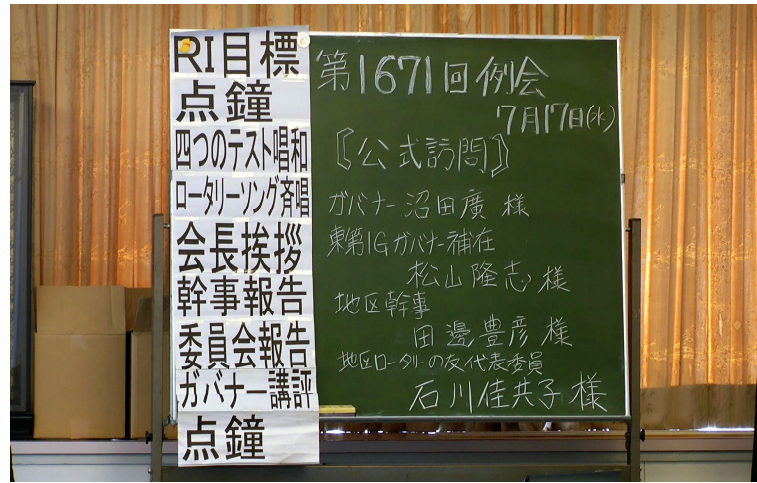 RI目標
点鐘
四つのテスト唱和
ロータリーソング斉唱
会長挨拶
幹事報告
委員会報告
ガバナー講評
点鐘
第1671回例会
7月17日(水)
〖公式訪問〗
ガバナー 沼田廣 様
東第1Gガバナー補在
松山隆志 様
地区幹事
田邊豊彦 様
地区ロータリーの友代表委員
石川佳共子 様